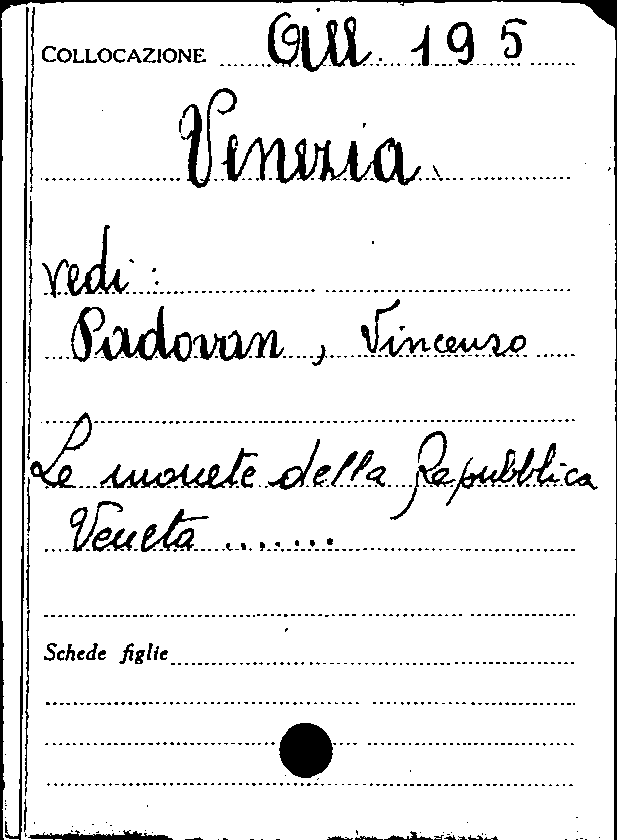 COLLOCAZIONE All. 195
Venezia.
vedi:
Padovan, Vincenzo
Le monete della Repubblica
Veneta .......
Schede figlie